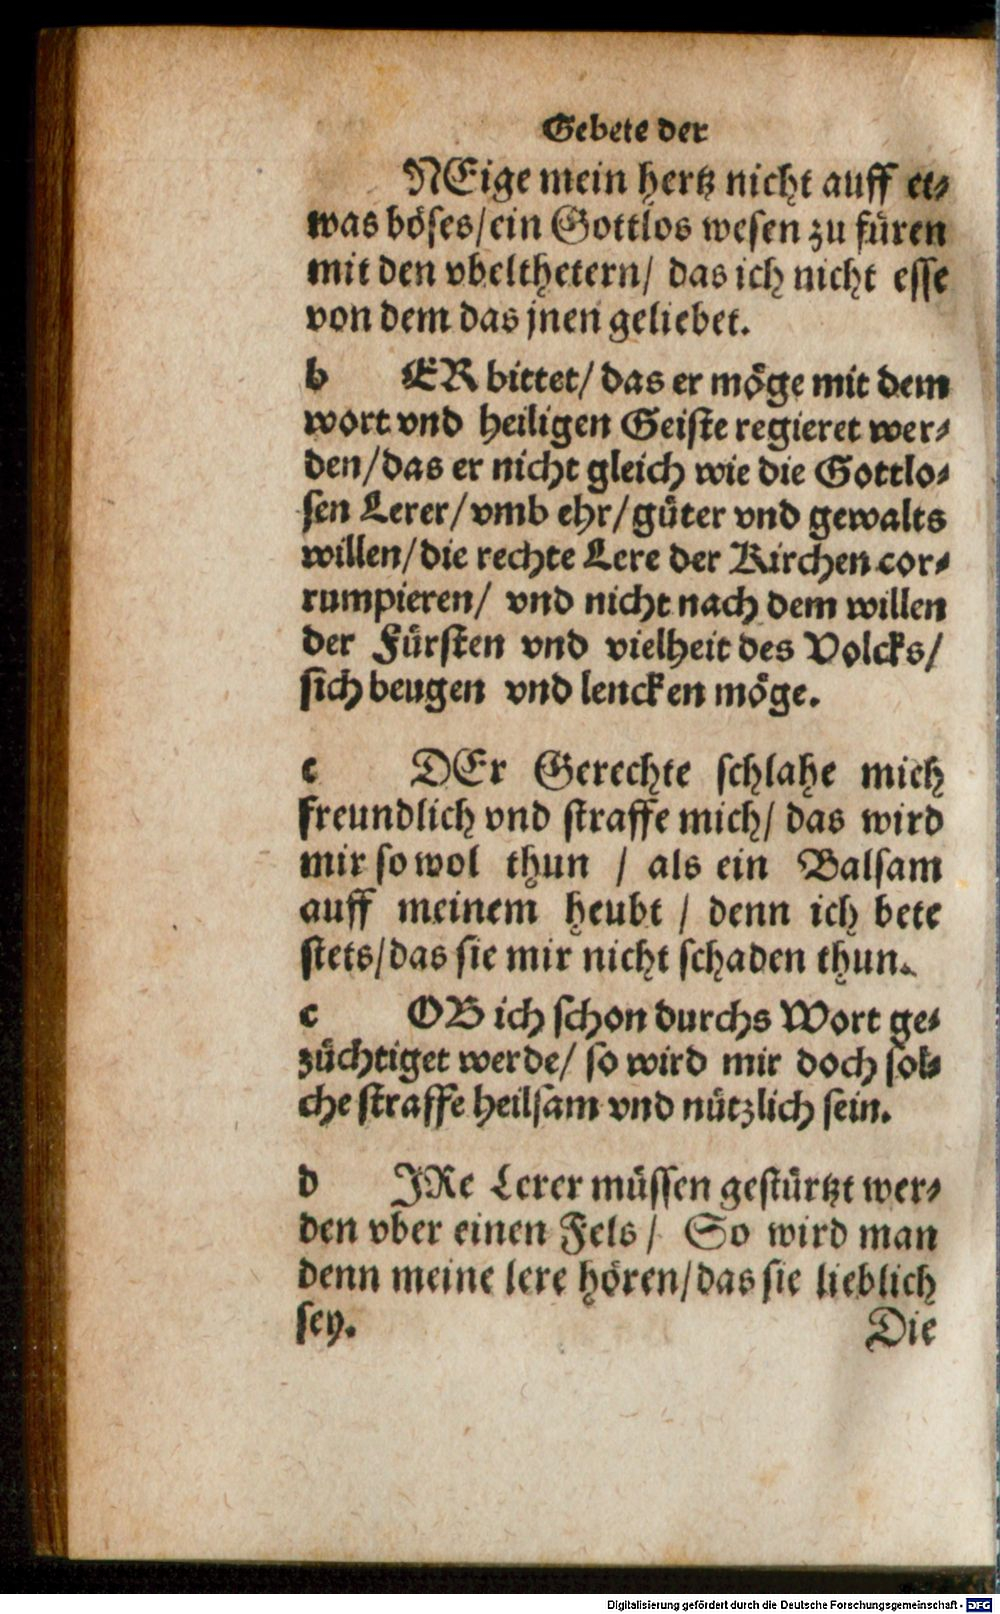 Gebete der
NEige mein hertz nicht auff et⸗
was böses/ein Gottlos wesen zu füren
mit den vbelthetern/ das ich nicht esse
von dem das jnen geliebet.
b ER bittet/ das er möge mit dem
wort vnd heiligen Geiste regieret wer⸗
den/das er nicht gleich wie die Gottlo⸗
sen Lerer/vmb ehr/güter vnd gewalts
willen/die rechte Lere der Kirchen cor⸗
rumpieren/ vnd nicht nach dem willen
der Fürsten vnd vielheit des Volcks/
sich beugen vnd lencken möge.
c DEr Gerechte schlahe mich
freundlich vnd straffe mich/ das wird
mir so wol thun / als ein Balsam
auff meinem heubt / denn ich bete
stets/das sie mir nicht schaden thun.
c OB ich schon durchs Wort ge⸗
züchtiget werde/ so wird mir doch sol⸗
che straffe heilsam vnd nützlich sein.
d JRe Lerer müssen gestürtzt wer⸗
den vber einen Fels/ So wird man
denn meine lere hören/das sie lieblich
sey. Die
Digitalisierung gefördert durch die Deutsche Forschungsgemeinschaft - DFG